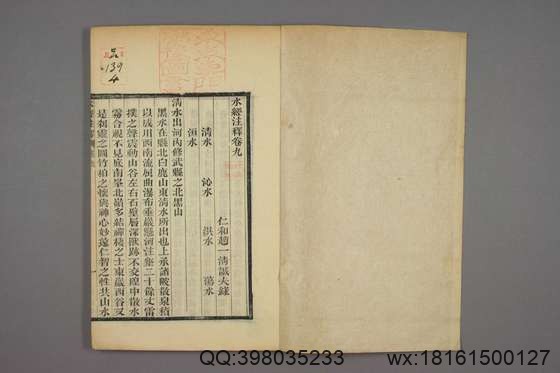 水經注釋卷九
仁和趙一清誠夫錄
清水 沁水 淇水 蕩水
洹水
清水出河內修武縣之北黑山
黑水在縣北白鹿山東清水所出也上承諸陂散泉積
以成川西南流屈曲瀑布乘巖懸河注壑二十餘丈雷
撲之聲震動山谷左右石壁層深獸跡不交隍中散水
霧合視不見底南峯北嶺多結禪棲之士東巖西谷又
是刹靈之圖竹柏之懷與神心妙遠仁智之性共山水
139
4
QQ:398035233 wx:18161500127